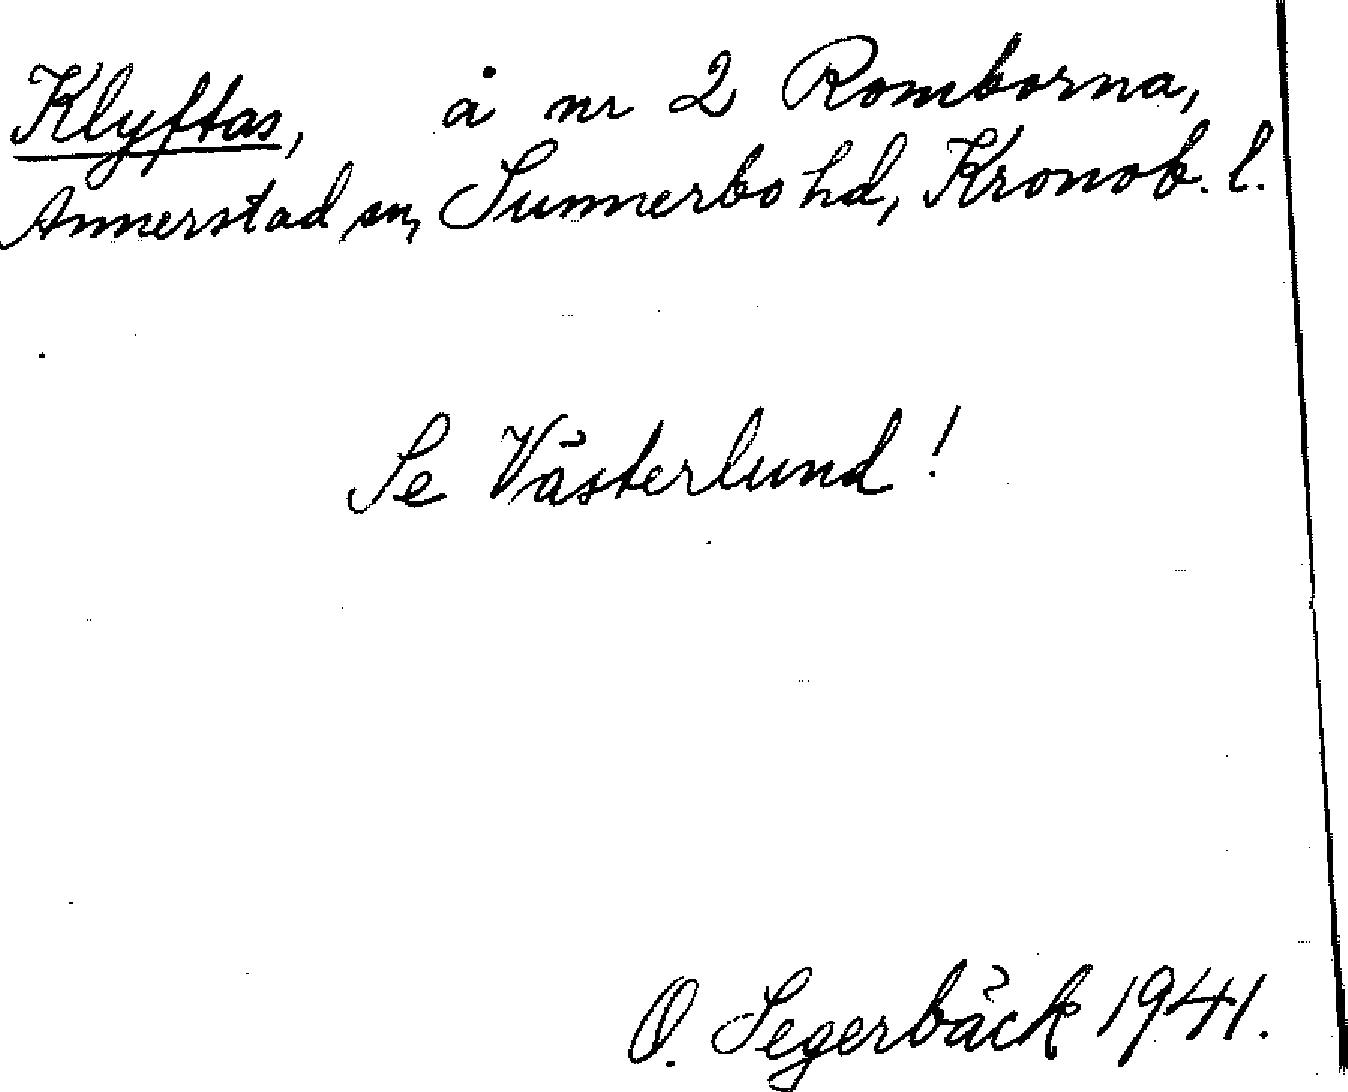 Klyftas, å nr 2 Romborna,
Annerstad sn, Sunnerbo hd, Kronob. l.
Se Västerlund!
O. Segerbäck 1941.